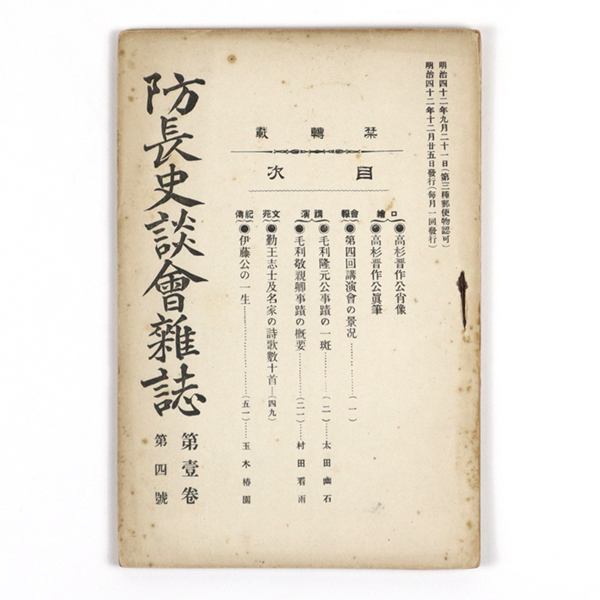 明治四十二年九月二十一日(第三種郵便物認可)
明治四十二年十二月廿五日發行(每月一回發行)
禁轉載
目次
口繪
●高杉晋作公肖像
●高杉晋作公眞筆
會報
●第四回講演會の景況………(一)
講演
●毛利隆元公事蹟の一斑………(二)……太田幽石
●毛利敬親卿事蹟の概要………(二一)……村田看雨
文苑
●勤王志士及名家の詩歌數十首―(四九)
記傳
●伊藤公の一生………(五一)……玉木椿園
防長史談會雜誌
第壹卷
第四號